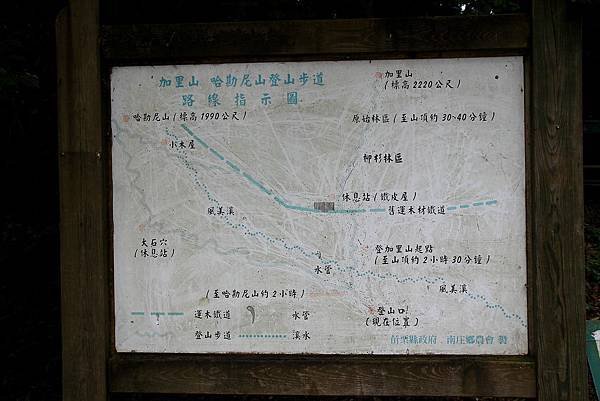 加里山 哈勘尼山登山步道
路線指示圖
加里山
(標高2220公尺)
哈勘尼山(標高1990公尺)
原始林區(至山頂約30~40分鐘)
小木屋
柳杉林區
休息站(鐵皮屋)
舊運木材鐵道
風美溪
大石穴
(休息站)
登加里山起點
(至山頂約2小時30分鐘)
水管
風美溪
(至哈勘尼山約2小時)
登山口
(現在位置)
運木鐵道
水管
登山步道
溪水
苗栗縣政府 南庄鄉農會 製